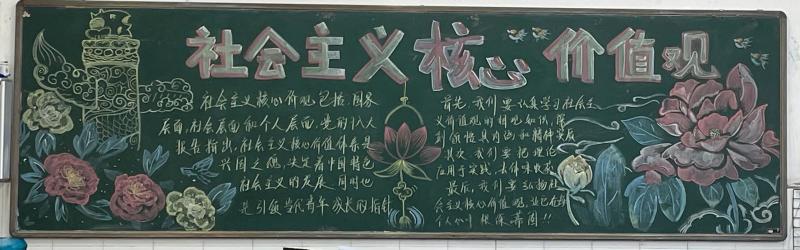 社会主义核心价值观
社会主义核心价值观包括国家
层面,社会层面和个人层面,党的十八大
报告指出,社会主义核心价值体系是
兴国之魂,决定着中国特色
社会主义的发展,同时也
是引领当代青年成长的指针
首先,我们要认真学习社会主
义价值观的相关知识,深
刻领悟其内涵和精神实质
其次,我们要把理论
应用于实践,去体味收获
最后,我们要弘扬社
会主义核心价值观,